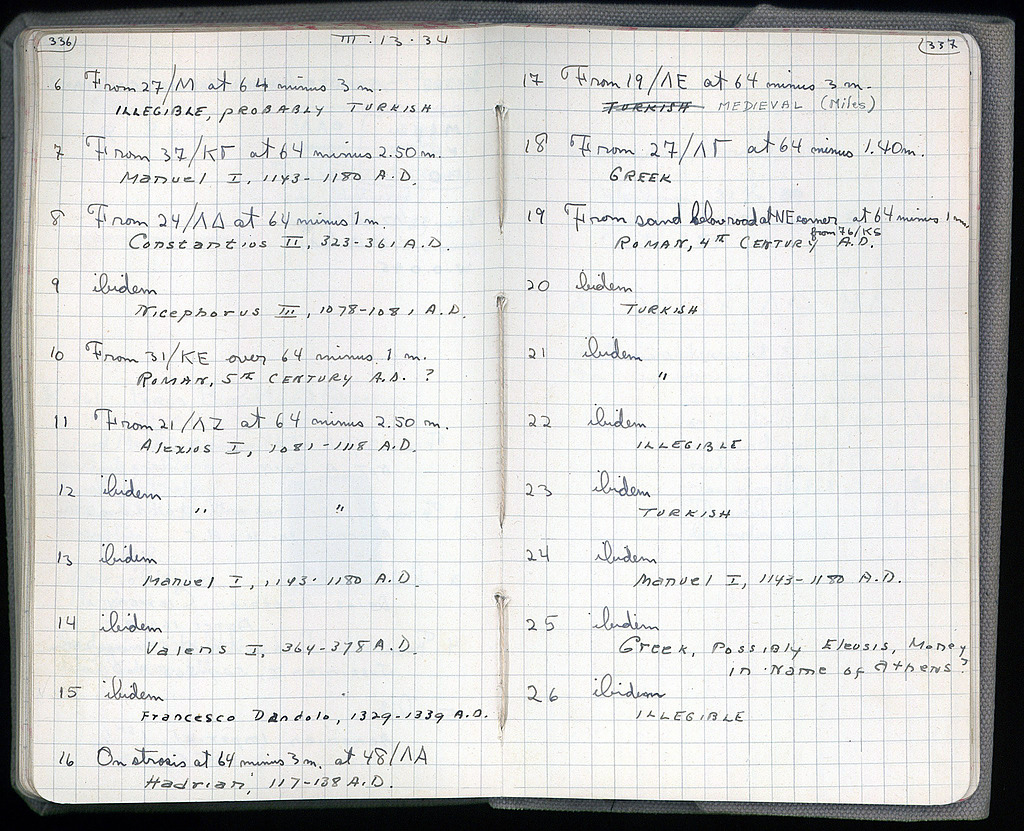 336
III.13.34
6 From 27/M at 64 minus 3 m.
ILLEGIBLE, PROBABLY TURKISH
7 From 37/ΚΓ at 64 minus 2.50 m.
Manuel I, 1143-1180 A.D.
8 From 24/ΛΔ at 64 minus 1 m.
Constantius II, 323-361 A.D.
9 ibidem
Nicephorus III, 1078-1081 A.D.
10 From 31/KE over 64 minus 1 m.
ROMAN, 5TH CENTURY A.D. ?
11 From 21/ΛΖ at 64 minus 2.50 m.
Alexios I, 1081-1118 A.D.
12 ibidem
" "
13 ibidem
Manuel I, 1143-1180 A.D.
14 ibidem
Valens I, 364-378 A.D.
15 ibidem
Francesco Dandolo, 1329-1339 A.D.
16 On strosis at 64 minus 3 m. at 48/ΛΑ
Hadrian, 117-138 A.D.
337
17 From 19/ΛΕ at 64 minus 3 m.
TURKISH MEDIEVAL (Miles)
18 From 27/ΛΓ at 64 minus 1.40 m.
GREEK
19 From sand below road at NE corner at 64 minus 1 m.
from 76/ΚΣ
ROMAN, 4TH CENTURY A.D.
20 ibidem
TURKISH
21 ibidem
"
22 ibidem
ILLEGIBLE
23 ibidem
TURKISH
24 ibidem
Manuel I, 1143-1180 A.D.
25 ibidem
Greek, Possibly Eleusis, Money
in Name of Athens?
26 ibidem
ILLEGIBLE